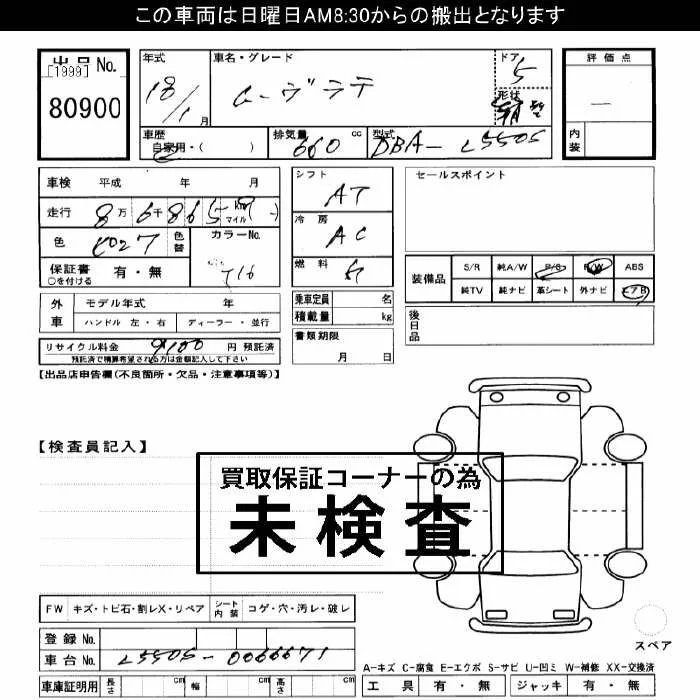 この車両は日曜日AM8:30からの搬出となります
出品 No.
[1999]
80900
年式
18/1 月
車名・グレード
ムーヴラテ
ドア
5
形状
評価点
—
内装
車歴
自家用・( )
排気量
660 cc
型式
DBA-L550S
車検 平成 年 月
走行 8万 6千 865 km マイル
色
色替
カラーNo.
T16
保証書
○を付ける
有・無
外車
モデル年式 年
ハンドル 左・右
ディーラー・並行
リサイクル料金 9100 円 預託済
預託済で精算希望される方は金額記入して下さい
シフト
AT
冷房
AC
燃料
ガ
乗車定員 名
積載量 kg
書類期限
月 日
セールスポイント
装備品
S/R 純A/W P/S P/W ABS
純TV 純ナビ 革シート 外ナビ エアB
後日品
【出品店申告欄(不良箇所・欠品・注意事項等)】
【検査員記入】
買取保証コーナーの為
未検査
FW キズ・トビ石・割レX・リペア
シート内装 コゲ・穴・汚レ・破レ
登録 No.
車台 No. L550S-0066671
車庫証明用 長さ cm 幅 cm 高さ cm
スペア
A-キズ C-腐食 E-エクボ S-サビ U-凹ミ W-補修 XX-交換済
工具 有・無 ジャッキ 有・無